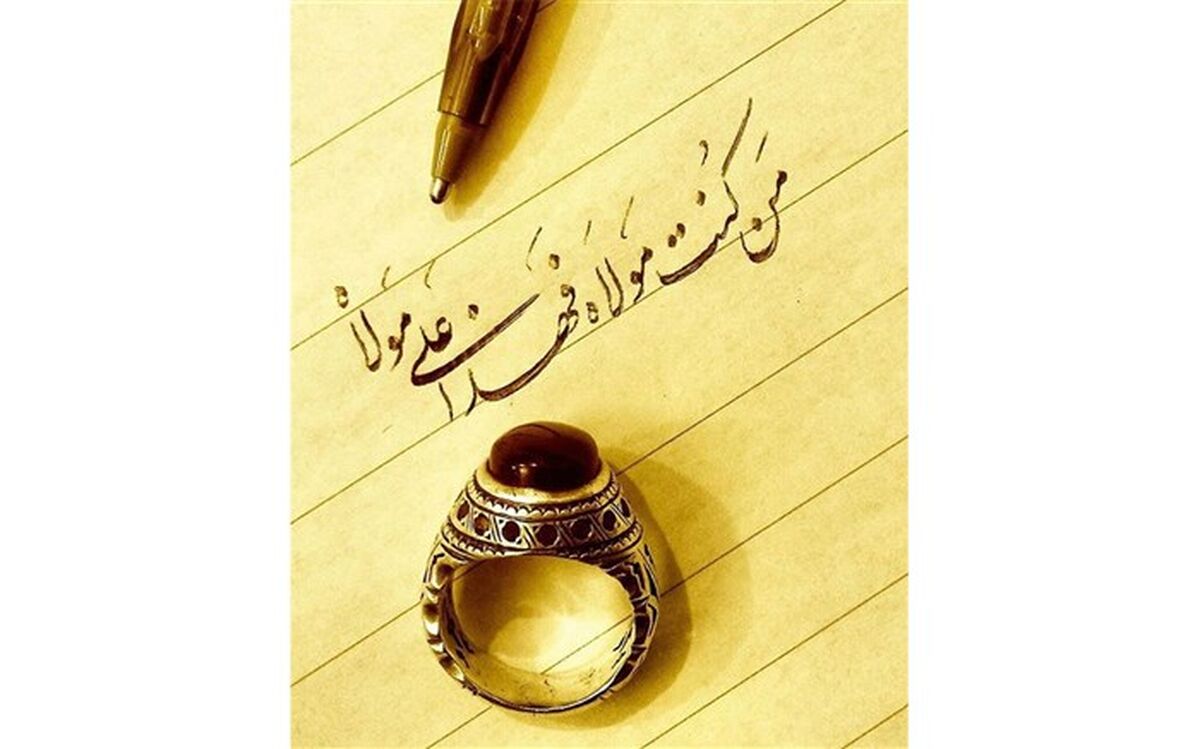 مَن کُنت مَولاه فَهذا عَلیٌ مَولاهُ